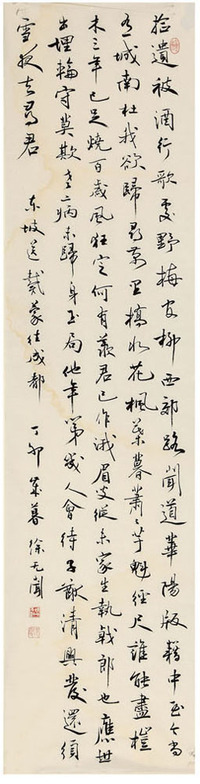 拾遺被酒行歌處野梅官柳西郊路聞道華陽版籍中至今尚
有城南杜我欲歸尋萬里橋水花楓葉暮蕭々芋魁經尺誰能盡榿
木三年已足燒百歲風狂定何有羨君已作峨眉叟縱未家生執戟郎也應世
出埋輪守莫欺老病未歸身玉局他年第幾人會待子猷清興發還須
雪夜去尋君 東坡送戴蒙往成都 丁卯歲暮 徐无聞